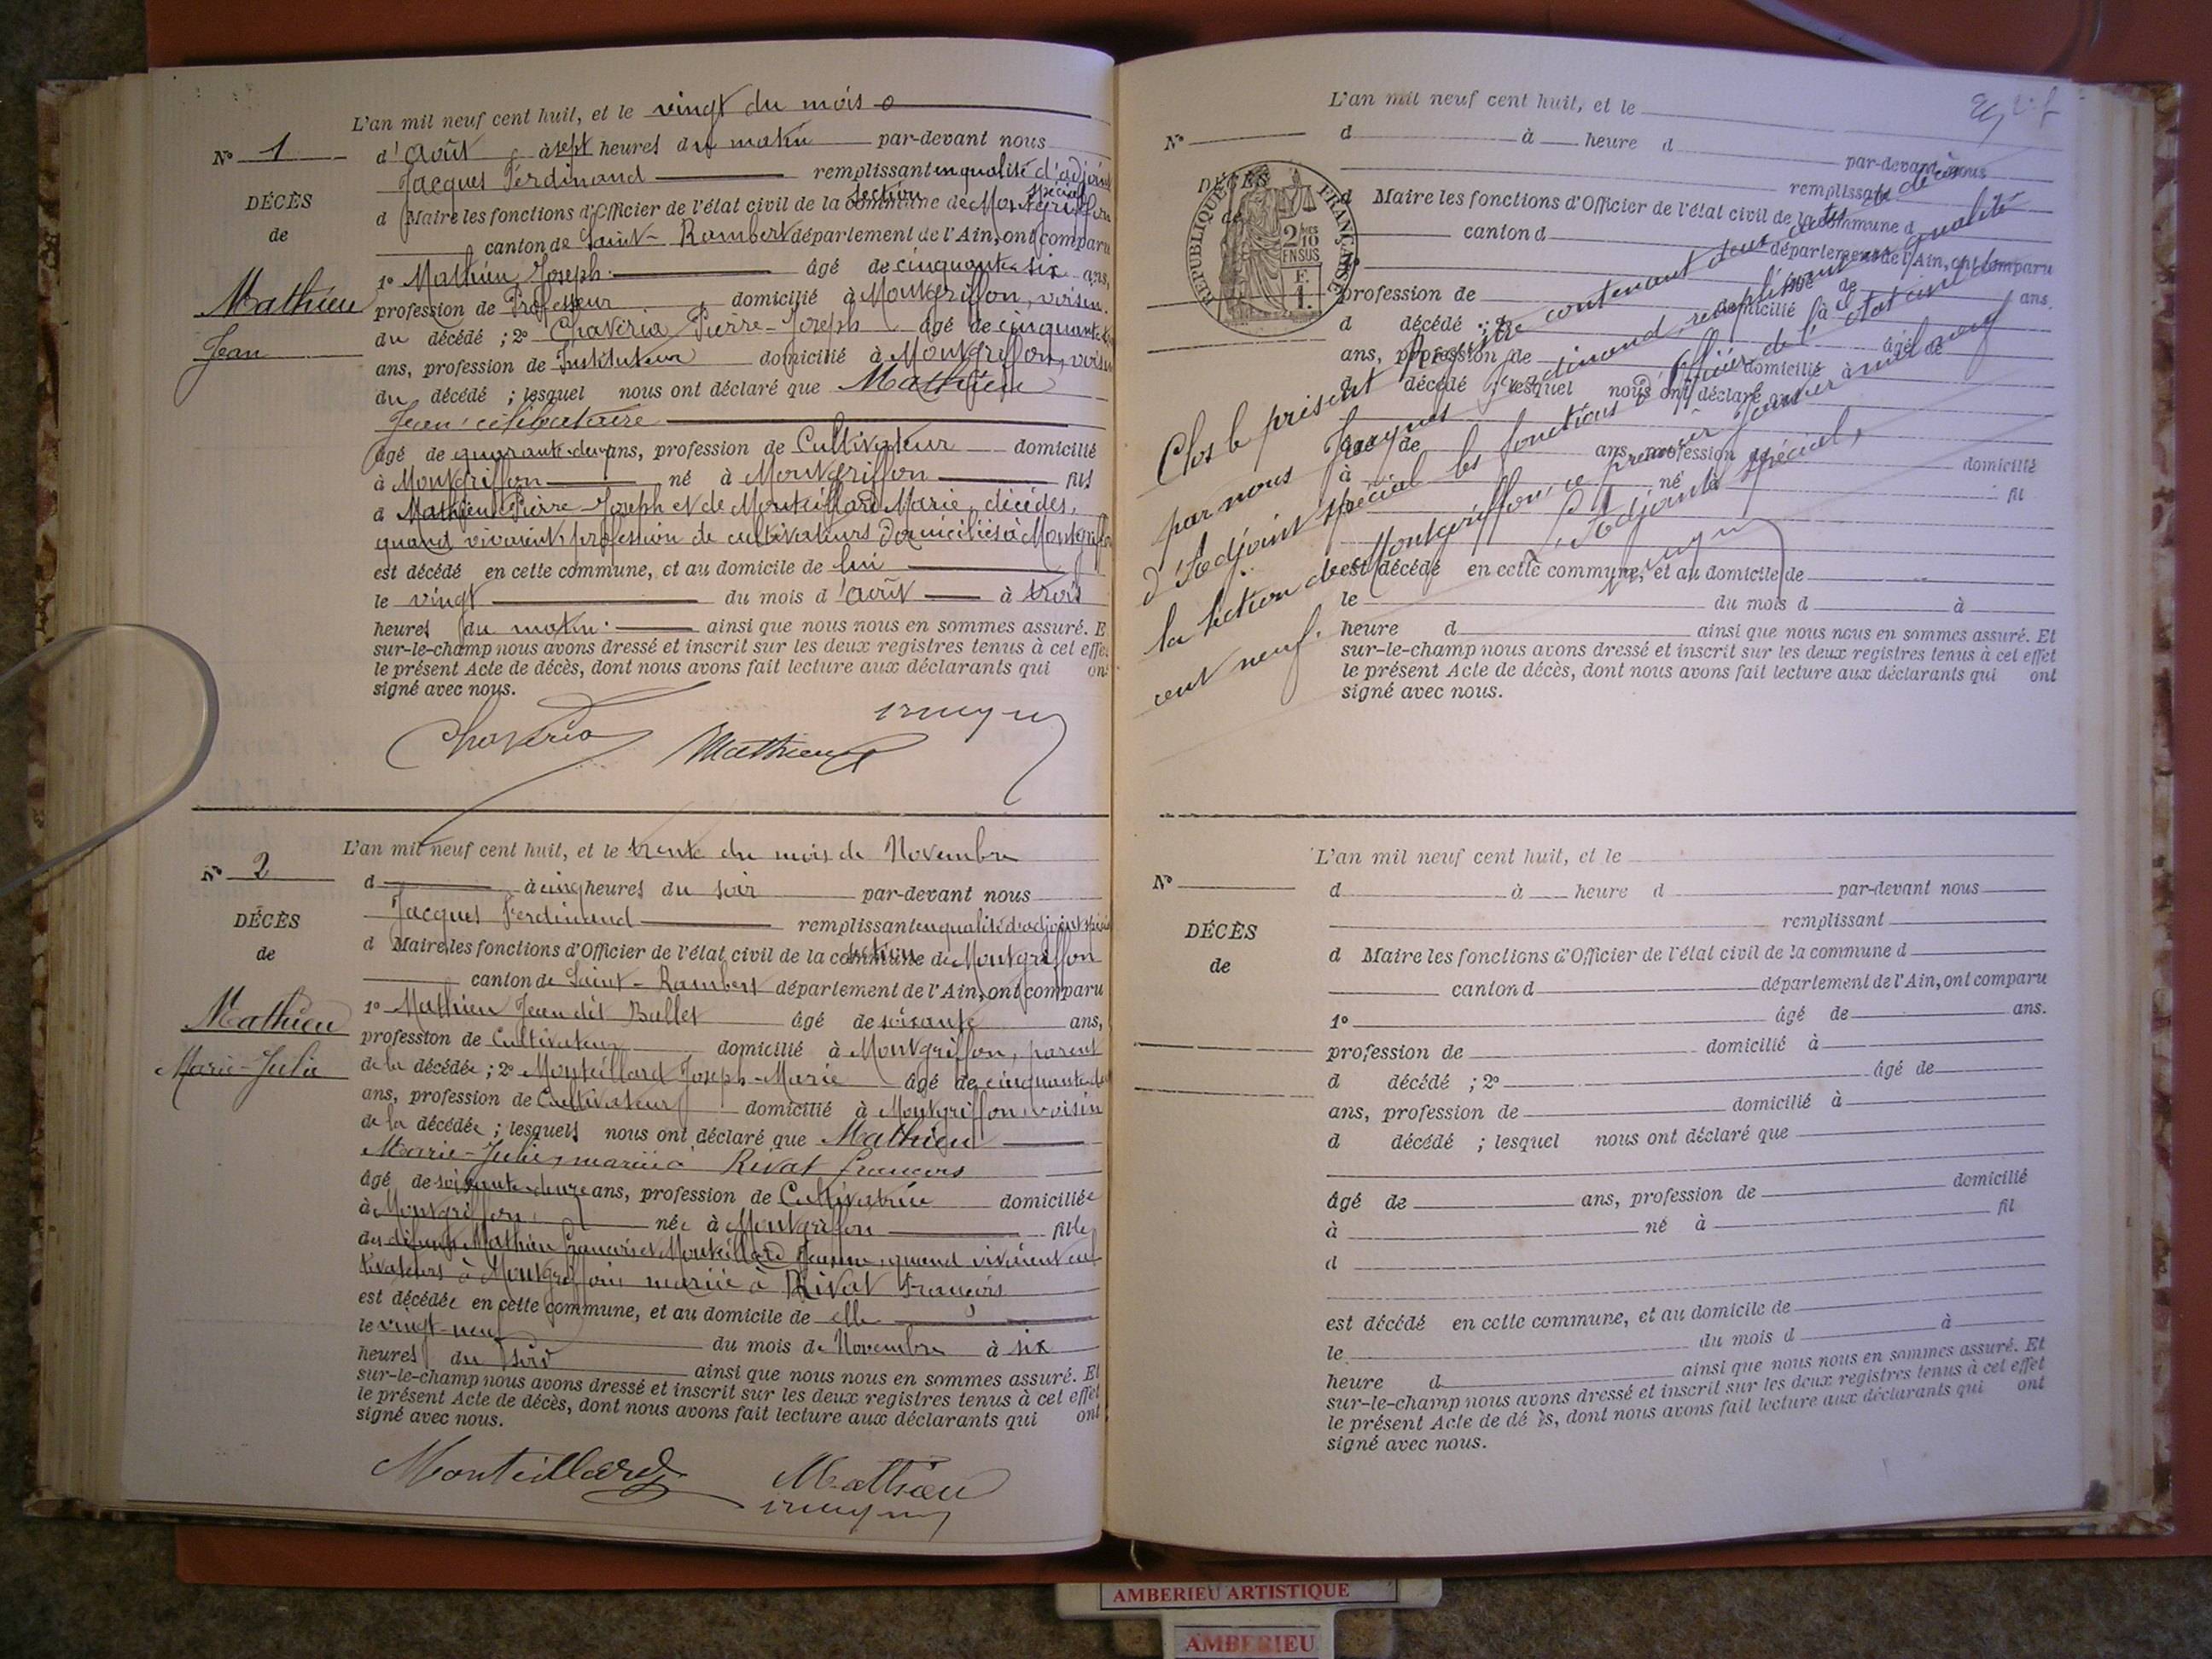 L'an mil neuf cent huit, et le vingt du mois
N° 1
d'Août à sept heures du matin par-devant nous
Jacques Ferdinand remplissant en qualité d'adjoint spécial
DÉCÈS
de
Mathieu
Jean
d Maire les fonctions d'Officier de l'état civil de la commune section de Montgriffon
canton de Saint-Rambert département de l'Ain, ont comparu
1° Mathieu Joseph âgé de cinquante-six ans,
profession de Professeur domicilié à Montgriffon, voisin
du décédé ; 2° Chaveria Pierre-Joseph âgé de cinquante
ans, profession de Instituteur domicilié à Montgriffon, voisin
du décédé ; lesquel nous ont déclaré que Mathieu
Jean célibataire
âgé de quarante-deux ans, profession de Cultivateur domicilié
à Montgriffon né à Montgriffon fils
d Mathieu Pierre-Joseph et de Monteillard Marie, décédés,
quand vivaient profession de cultivateurs domiciliés à Montgriffon
est décédé en cette commune, et au domicile de lui
le vingt du mois d'août à trois
heures du matin. ainsi que nous nous en sommes assuré. E
sur-le-champ nous avons dressé et inscrit sur les deux registres tenus à cet effet
le présent Acte de décès, dont nous avons fait lecture aux déclarants qui ont
signé avec nous.
Chaveria Mathieu
L'an mil neuf cent huit, et le trente du mois de Novembre
N° 2
d à cinq heures du soir par-devant nous
Jacques Ferdinand remplissant en qualité d'adjoint spécial
DÉCÈS
de
Mathieu
Marie-Julie
d Maire les fonctions d'Officier de l'état civil de la commune section de Montgriffon
canton de Saint-Rambert département de l'Ain, ont comparu
1° Mathieu Jean dit Ballet âgé de soixante ans,
profession de Cultivateur domicilié à Montgriffon, parent
de la décédée ; 2° Monteillard Joseph-Marie âgé de cinquante-deux
ans, profession de Cultivateur domicilié à Montgriffon, voisin
de la décédée ; lesquels nous ont déclaré que Mathieu
Marie-Julie, mariée à Rivat François
âgé de soixante-douze ans, profession de Cultivatrice domiciliée
à Montgriffon née à Montgriffon fille
des défunts Mathieu François et Monteillard Jeanne, quand vivaient cul
tivateurs à Montgriffon, mariée à Rivat François
est décédée en cette commune, et au domicile de elle
le vingt-neuf du mois de Novembre à six
heures du soir ainsi que nous nous en sommes assuré. Et
sur-le-champ nous avons dressé et inscrit sur les deux registres tenus à cet effet
le présent Acte de décès, dont nous avons fait lecture aux déclarants qui ont
signé avec nous.
Monteillard Mathieu
L'an mil neuf cent huit, et le
N°
d à heure d par-devant nous
remplissant
DÉCÈS
de
RÉPUBLIQUE FRANÇAISE
2/10 EN SUS
F. 1.
d Maire les fonctions d'Officier de l'état civil de la commune d
canton d département de l'Ain, ont comparu
profession de domicilié à ans.
d décédé ; 2° âgé de
ans, profession de domicilié à
d décédé ; lesquel nous ont déclaré que
âgé de ans, profession de domicilié
à né à fil
est décédé en cette commune, et au domicile de
le du mois d à
heure d ainsi que nous nous en sommes assuré. Et
sur-le-champ nous avons dressé et inscrit sur les deux registres tenus à cet effet
le présent Acte de décès, dont nous avons fait lecture aux déclarants qui ont
signé avec nous.
Clos le présent Registre contenant deux actes de décès
par nous Jacques Ferdinand remplissant en qualité
d'Adjoint spécial les fonctions d'Officier de l'état civil de
la section de Montgriffon, ce premier Janvier mil neuf
cent neuf.
L'Adjoint spécial,
L'an mil neuf cent huit, et le
N°
d à heure d par-devant nous
remplissant
DÉCÈS
de
d Maire les fonctions d'Officier de l'état civil de la commune d
canton d département de l'Ain, ont comparu
1° âgé de ans.
profession de domicilié à
d décédé ; 2° âgé de
ans, profession de domicilié à
d décédé ; lesquel nous ont déclaré que
âgé de ans, profession de domicilié
à né à fil
d
est décédé en cette commune, et au domicile de
le du mois d à
heure d ainsi que nous nous en sommes assuré. Et
sur-le-champ nous avons dressé et inscrit sur les deux registres tenus à cet effet
le présent Acte de dé ès, dont nous avons fait lecture aux déclarants qui ont
signé avec nous.
AMBERIEU ARTISTIQUE
AMBERIEU